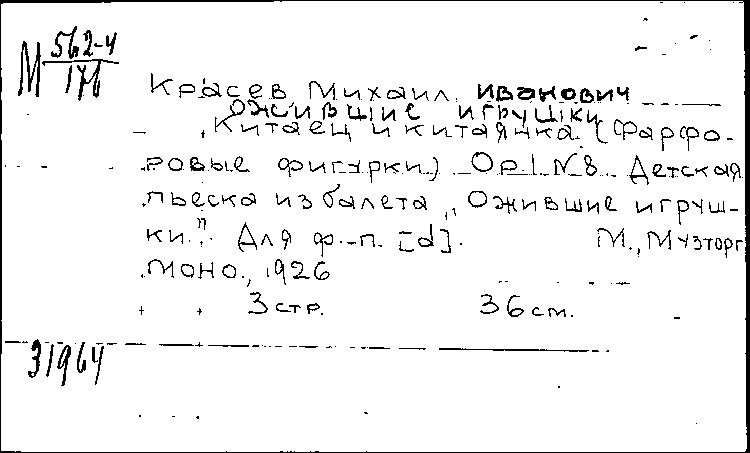 М 562-4
176
Красев Михаил Иванович
Ожившие игрушки
Китаец и китаянка. (Фарфо-
ровые фигурки) Op. 1 № 8 Детская
пьеска из балета „Ожившие игруш-
ки". Для ф.-п. [d]. М., Музторг
МОНО., 1926
3 стр. 36 см.
31964